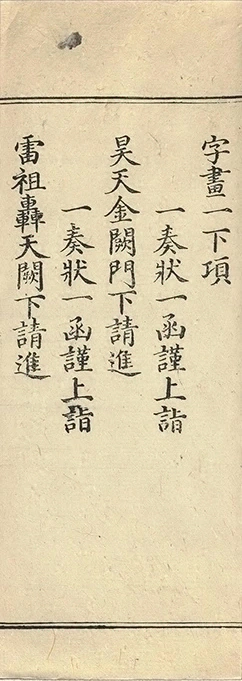 字畫一下項
一奏狀一函謹上詣
昊天金闕門下請進
一奏狀一函謹上詣
雷祖轟天闕下請進